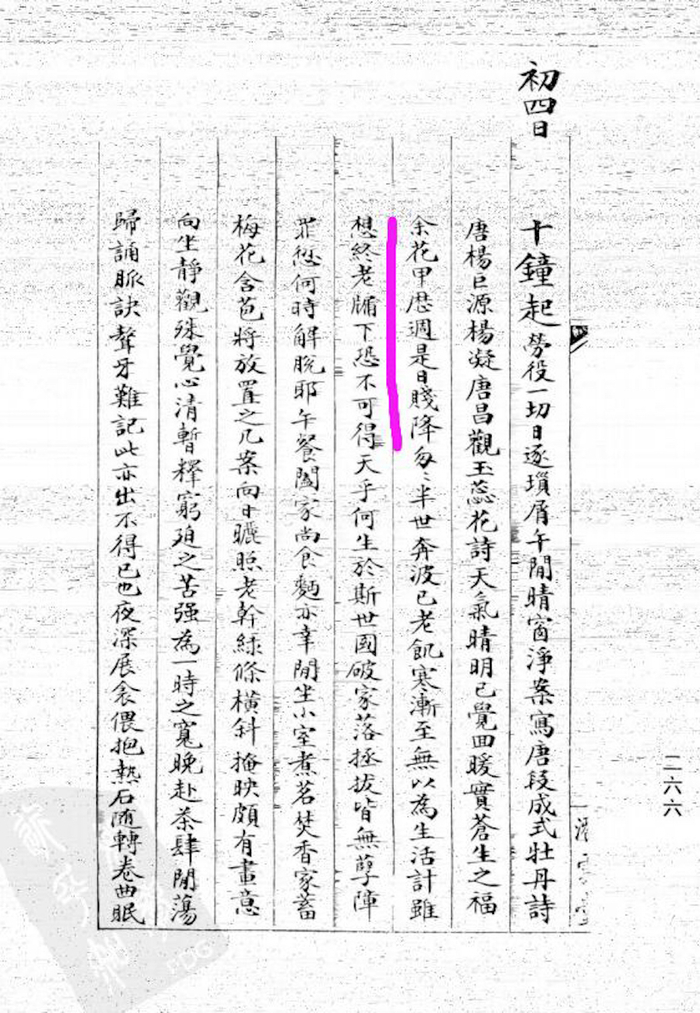 初四日
十鐘起勞役一切日逐瑣屑午間晴窗淨案寫唐段成式牡丹詩
唐楊巨源楊凝唐昌觀玉蕊花詩天氣晴明已覺回暖實蒼生之福
余花甲歷週是日賤降匆〻半世奔波已老飢寒漸至無以為生活計雖
想終老牖下恐不可得天乎何生於斯世國破家落拯拔皆無孽障
罪愆何時解脫耶午餐闔家尚食麵亦幸閒坐小室煮茗焚香家蓄
梅花含苞將放置之几案向日曬照老幹綠條橫斜掩映頗有畫意
向坐靜觀殊覺心清暫釋窮迫之苦強為一時之寬晚赴茶肆閒蕩
歸誦脈訣聱牙難記此亦出不得已也夜深展衾偎抱熱石隨轉卷曲眠
二六六